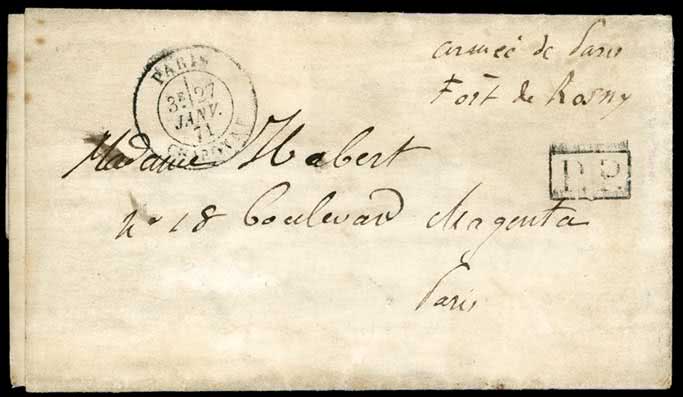 armée de Paris
Fort de Rosny
PARIS
3E 27
JANV.
71
CHARONNE
P.P.
Madame Habert
no 18 boulevard Magenta
Paris